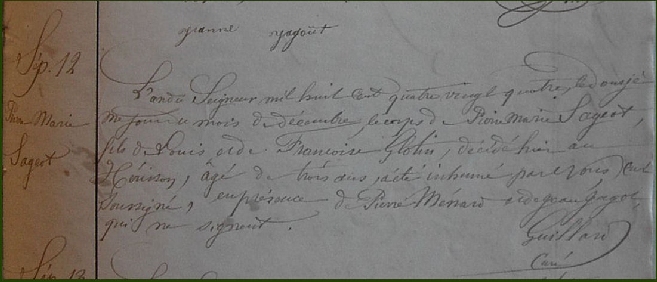 Sép. 12
Pierre Marie
Sageot
L'an du Seigneur mil huit cent quatre vingt quatre, le douziè
me jour du mois de décembre, le corps de Pierre Marie Sageot,
fils de Louis et de Françoise Glotin, décédé hier au
Housson, âgé de trois ans, a été inhumé par nous, Curé
soussigné, en présence de Pierre Ménard et de Jean Gagot
qui ne signent.
Guillard
Curé
Sép. 13